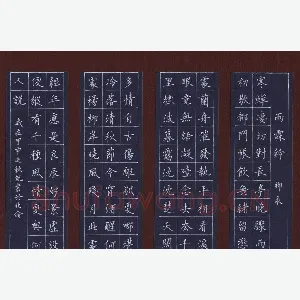 雨霖鈴 柳永
寒蟬淒切對長亭晚驟雨
初歇都門帳飲無緒留戀
處蘭舟催發執手相看淚
眼竟無語凝噎念去去千
里煙波暮靄沉沉楚天闊
多情自古傷離別更那堪
冷落清秋節今宵酒醒何
處楊柳岸曉風殘月此去
經年應是良辰好景虛設
便縱有千種風情更與何
人說
歲在甲申之秋書於北侖